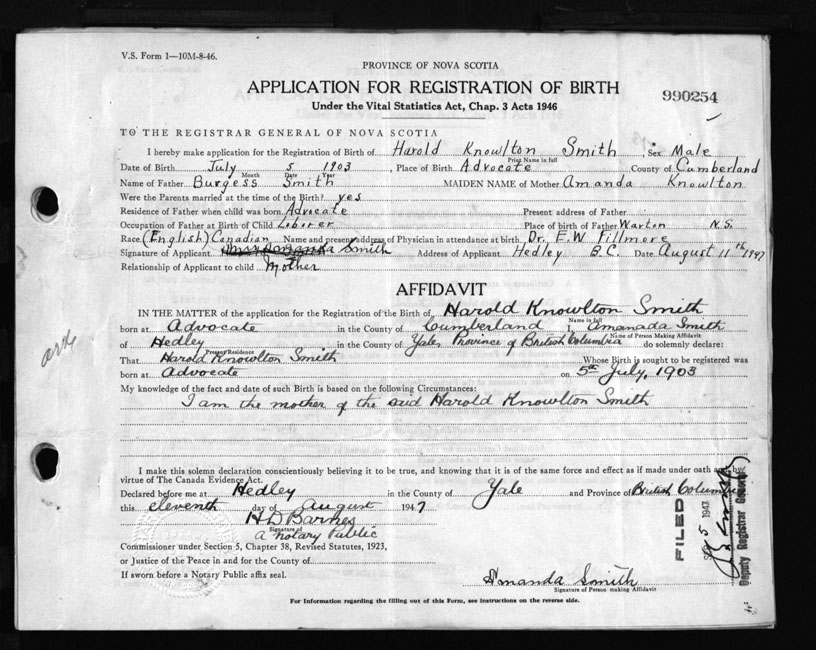 V.S. Form 1—10M-8-46.
PROVINCE OF NOVA SCOTIA
APPLICATION FOR REGISTRATION OF BIRTH
Under the Vital Statistics Act, Chap. 3 Acts 1946
990254
TO THE REGISTRAR GENERAL OF NOVA SCOTIA
I hereby make application for the Registration of Birth of Harold Knowlton Smith, Sex Male
Print Name in full
Date of Birth July 5 1903, Place of Birth Advocate County of Cumberland
Month Date Year
Name of Father Burgess Smith MAIDEN NAME of Mother Amanda Knowlton
Were the Parents married at the time of the Birth? yes
Residence of Father when child was born Advocate Present address of Father
Occupation of Father at Birth of Child Laborer Place of birth of Father Warton N.S.
Race (English) Canadian Name and present address of Physician in attendance at birth Dr. F.W. Fillmore
Signature of Applicant Smith Address of Applicant Hedley B.C. Date August 11th 1947
Relationship of Applicant to child Mother
AFFIDAVIT
IN THE MATTER of the application for the Registration of the Birth of Harold Knowlton Smith
Name in full
born at Advocate in the County of Cumberland I, Amanada Smith
Name of Person Making Affidavit
of Hedley in the County of Yale, Province of British Columbia do solemnly declare:
Present Residence
That Harold Knowlton Smith Whose Birth is sought to be registered was
born at Advocate on 5th July, 1903
My knowledge of the fact and date of such Birth is based on the following Circumstances:
I am the mother of the said Harold Knowlton Smith
I make this solemn declaration conscientiously believing it to be true, and knowing that it is of the same force and effect as if made under oath and by
virtue of The Canada Evidence Act.
Declared before me at Hedley in the County of Yale and Province of British Columbia
this eleventh day of August 1947
H D Barnes
Signature of
A Notary Public
Commissioner under Section 5, Chapter 38, Revised Statutes, 1923,
or Justice of the Peace in and for the County of
If sworn before a Notary Public affix seal.
Amanda Smith
Signature of Person making Affidavit
For Information regarding the filling out of this Form, see instructions on the reverse side.
FILED
5 1947
Deputy Registrar General